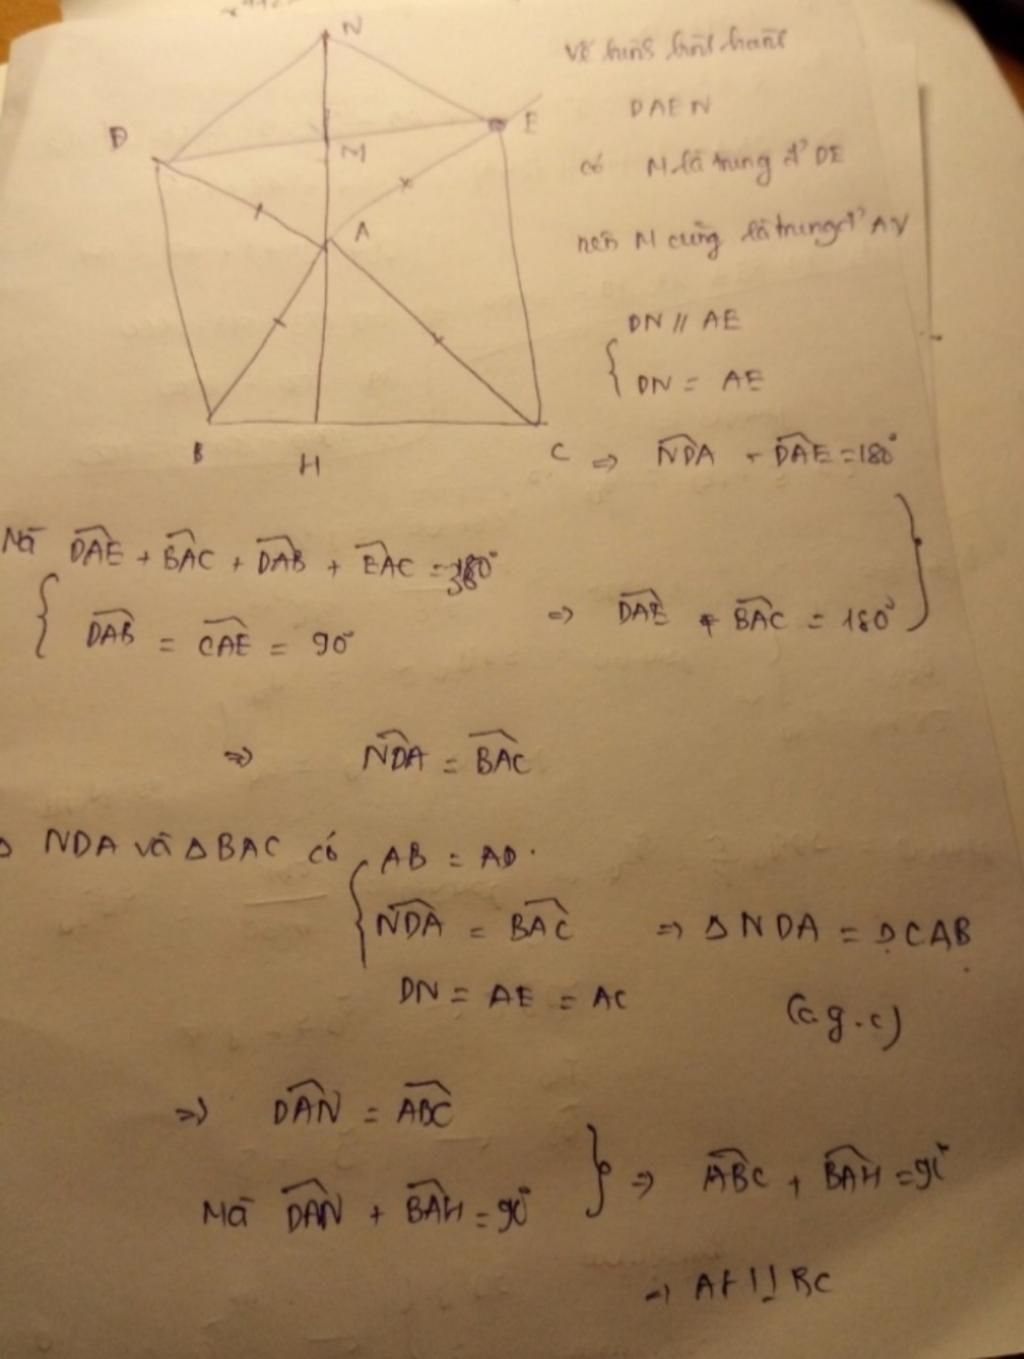 N
D
M
E
A
B
H
C
Vẽ hình bình hành
DAEN
có M là trung đ' DE
nên M cũng là trung đ' AN
DN // AE
{ DN = AE
=> NDA + DAE = 180°
Mà DAE + BAC + DAB + EAC = 360°
{ DAB = CAE = 90°
=> DAE + BAC = 180° }
=> NDA = BAC
Δ NDA và Δ BAC có { AB = AD.
NDA = BAC => Δ NDA = Δ CAB
DN = AE = AC
(c.g.c)
=> DAN = ABC
Mà DAN + BAH = 90° } => ABC + BAH = 90°
=> AH ⊥ BC